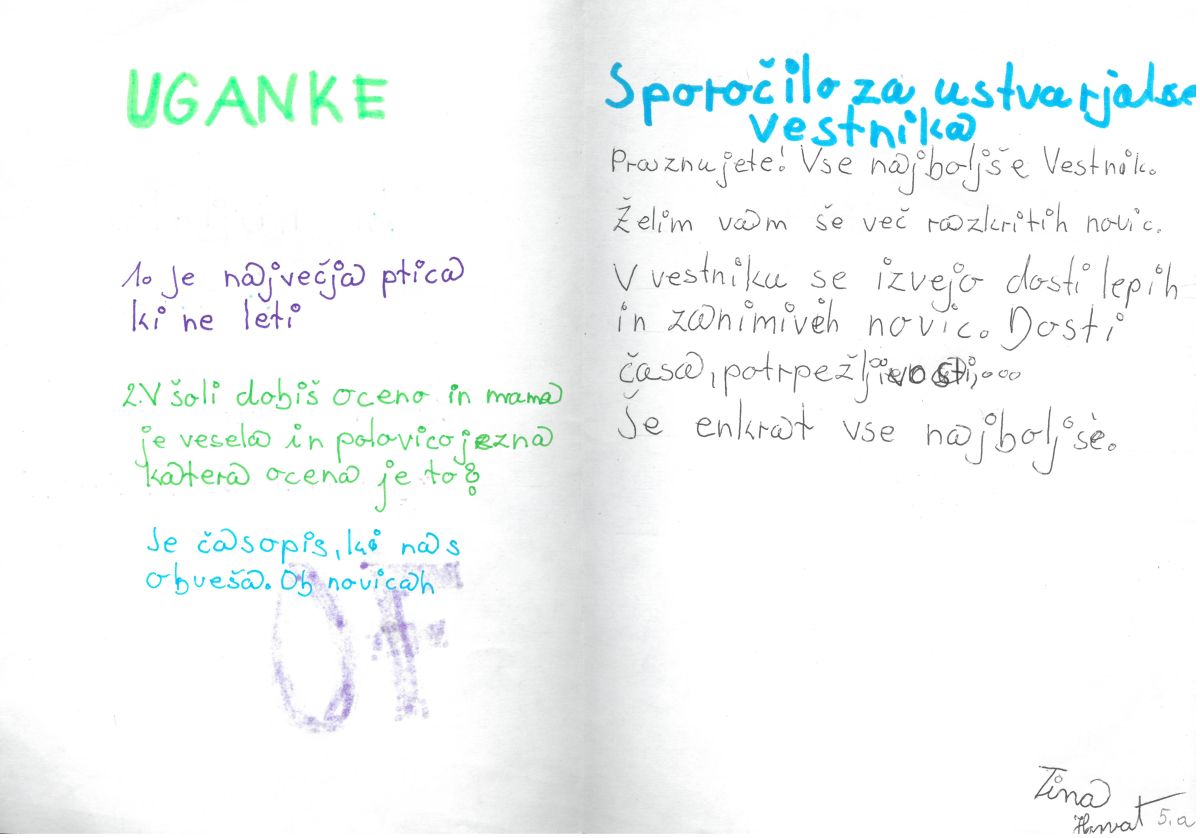 UGANKE
1. Je največja ptica
ki ne leti
2. V šoli dobiš oceno in mama
je vesela in polovico jezna
katera ocena je to?
Je časopis, ki nas
obveša. Ob novicah
Sporočilo za ustvarjalce
vestnika
Praznujete! Vse najboljše Vestnik.
Želim vam še več razkritih novic.
V vestniku se izvejo dosti lepih
in zanimivih novic. Dosti
časa, potrpežljivosti,...
Še enkrat vse najboljše.
Tina
Horvat 5.a